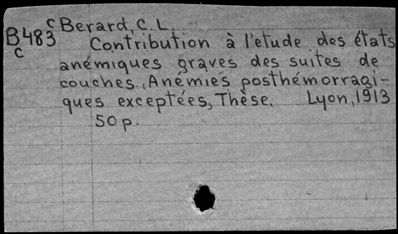 c Berard, C. L.
B483
c
Contribution à l'etude des états
anémiques graves des suites de
couches, Anémies posthémorragi-
ques exceptées, Thèse. Lyon, 1913
50 p.